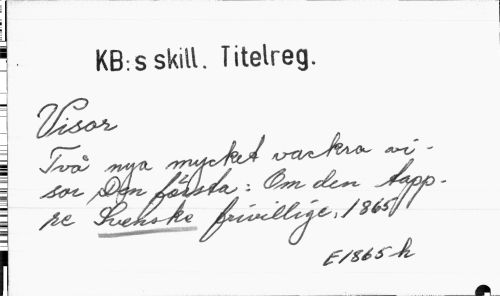 KB:s skill. Titelreg.
Visor
Två nya mycket vackra vi-
sor Den första: Om den tapp-
re Svenske frivillige, 1865
E1865 h